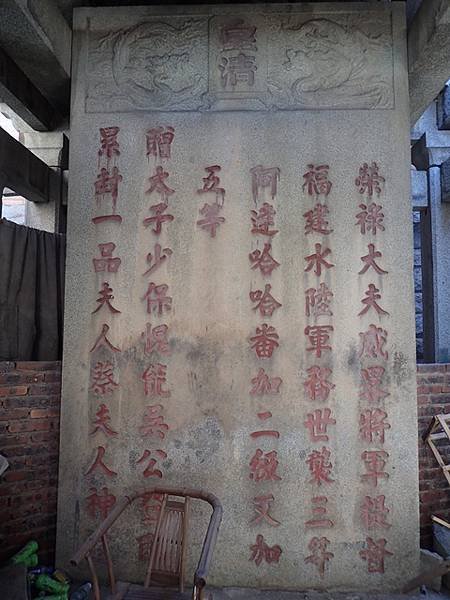 皇清
榮祿大夫威畧將軍提督
福建水陸軍務世襲三等
阿達哈哈番加二級又加
五等
贈太子少保愧能吳公
累封一品夫人蔡夫人神